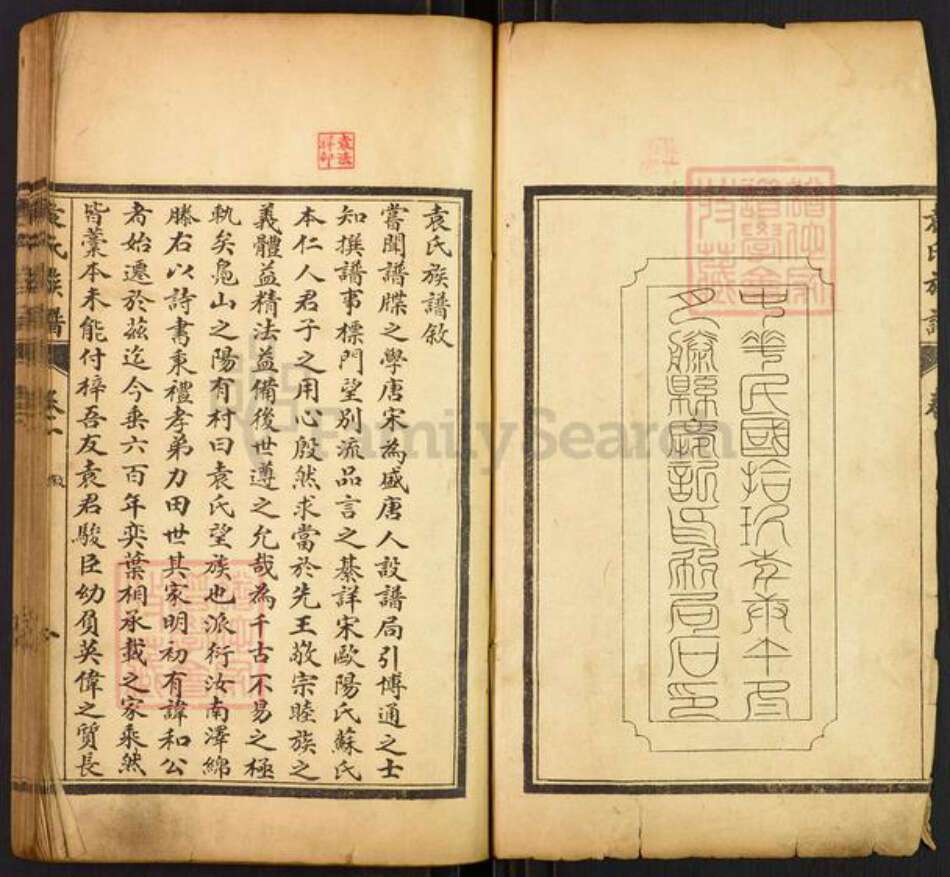 中華民國拾玖年庚午冬
月滕縣
袁氏族譜敘
嘗聞譜牒之學唐宋為盛唐人設譜局引博通之士
知撰譜事標門望別流品言之綦詳宋歐陽氏蘇氏
本仁人君子之用心殷然求當於先王敬宗睦族之
義體益精法益備後世遵之允哉為千古不易之極
軌矣鳧山之陽有村曰袁氏望族也派衍汝南澤綿
滕右以詩書秉禮孝弟力田世其家明初有諱和公
者始遷於茲迄今垂六百年奕葉相承載之家乘然
皆藁本未能付梓吾友袁君駿臣幼負英偉之質長
袁氏族譜
FamilySearch